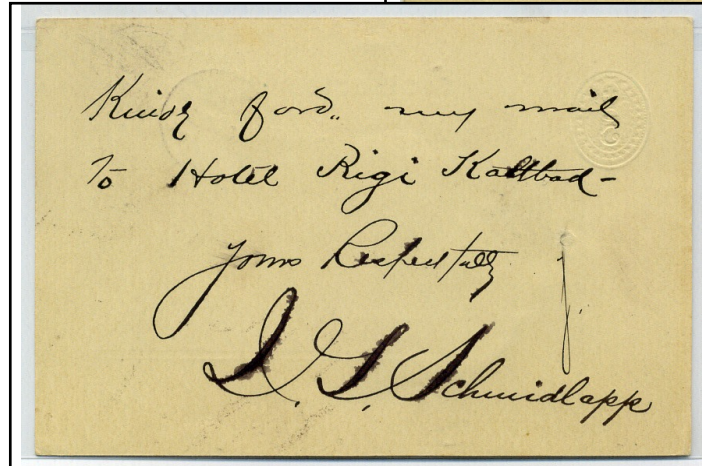 Kindy ford. my mail
to Hotel Rigi Kaltbad-
Yours Respectfully
J. G. Schmidlapp